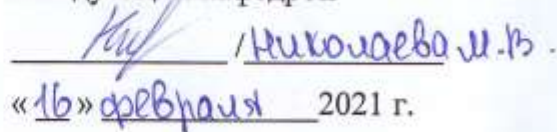 / Николаева М.В.
«16» февраля 2021 г.